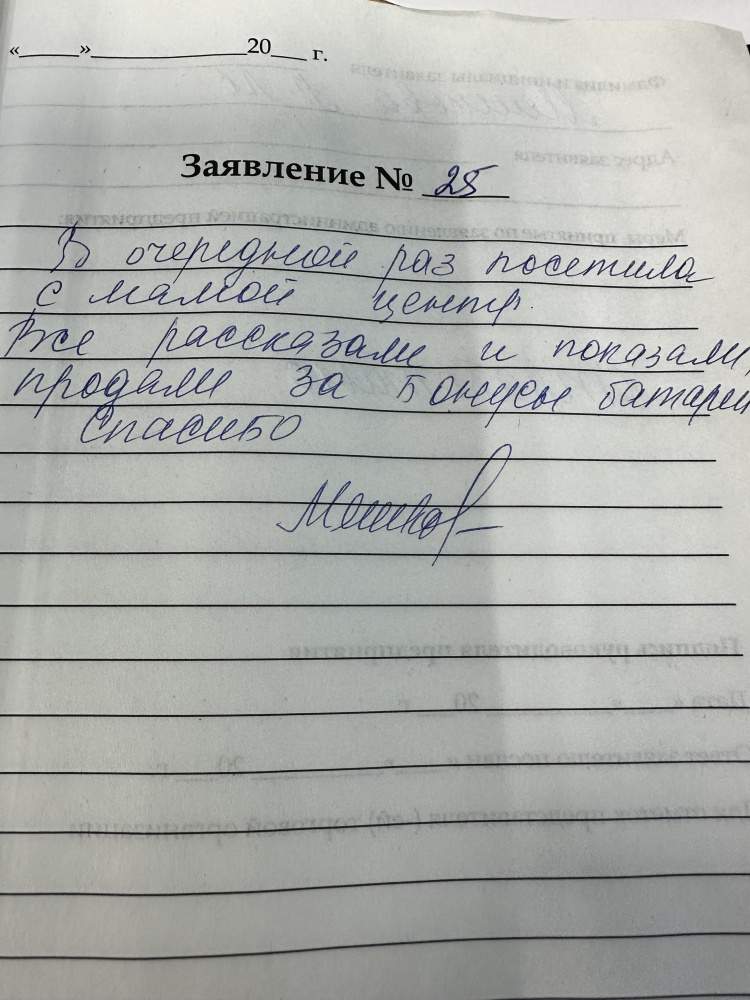 «_____»______________20___ г.
Заявление № 25
В очередной раз посетила
с мамой центр.
Все рассказали и показали,
продали за бонусы батареи
Спасибо